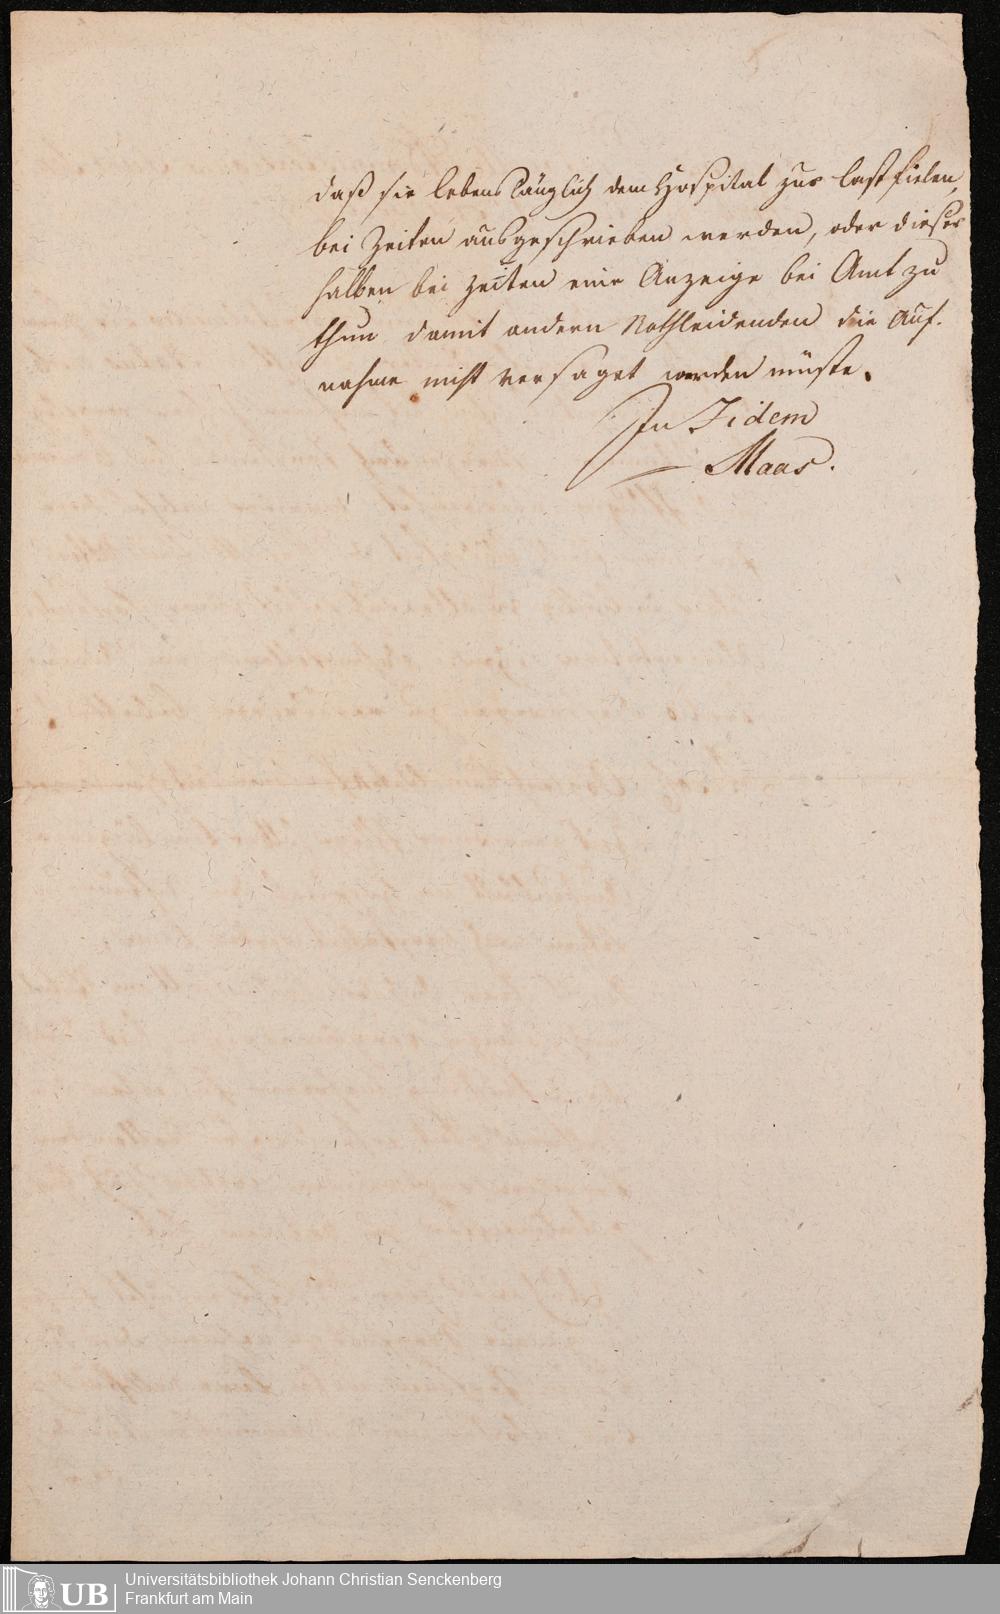 daß sie lebens länglich dem Hospital zur last fielen,
bei Zeiten ausgeschrieben werden, oder dieser
halben bei Zeiten eine Anzeige bei Amt zu
thun damit andern Nothleidenden die Auf-
nahme nicht versaget werden müste.
In Fidem
Maas.
UB
Universitätsbibliothek Johann Christian Senckenberg
Frankfurt am Main